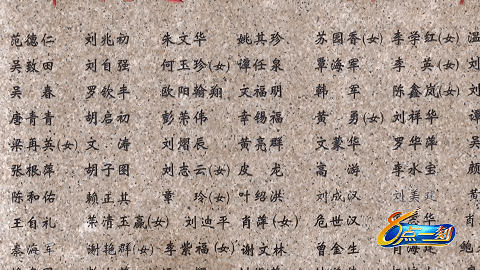 范德仁 刘兆初 朱文华 姚其珍 苏园香(女) 李学红(女) 温
吴致田 刘自强 何玉珍(女) 谭任泉 覃海军 李英(女) 刘
吴春 罗钦丰 欧阳翰翔 文福明 韩军 陈鑫岚(女) 刘
唐青青 胡启初 彭荣伟 幸锡福 黄勇(女) 刘祥华 谭
梁再英(女) 文涛 刘熠辰 黄亮群 文蒙华 罗华萍 吴
张根萍 胡子图 刘志云(女) 皮龙 高游 李水宝 颜
陈和佑 赖正其 章玲(女) 叶绍洪 刘成汉 刘美
王自礼 荣清玉赢(女) 刘迪平 肖萍(女) 危世汉 华 肖
秦海军 谢艳群(女) 李紫福(女) 谢文林 曾金生 肖海
8点一刻